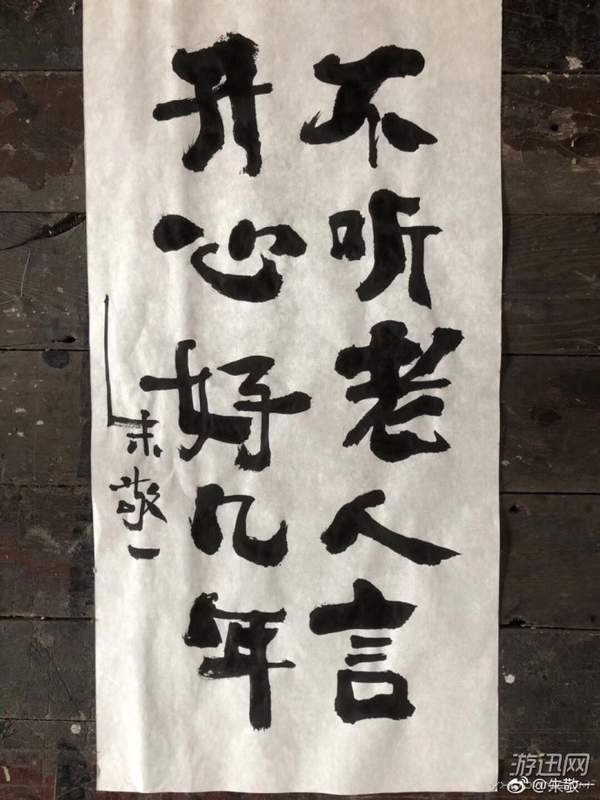 不听老人言
开心好几年
朱敬一
游迅网
@朱敬一